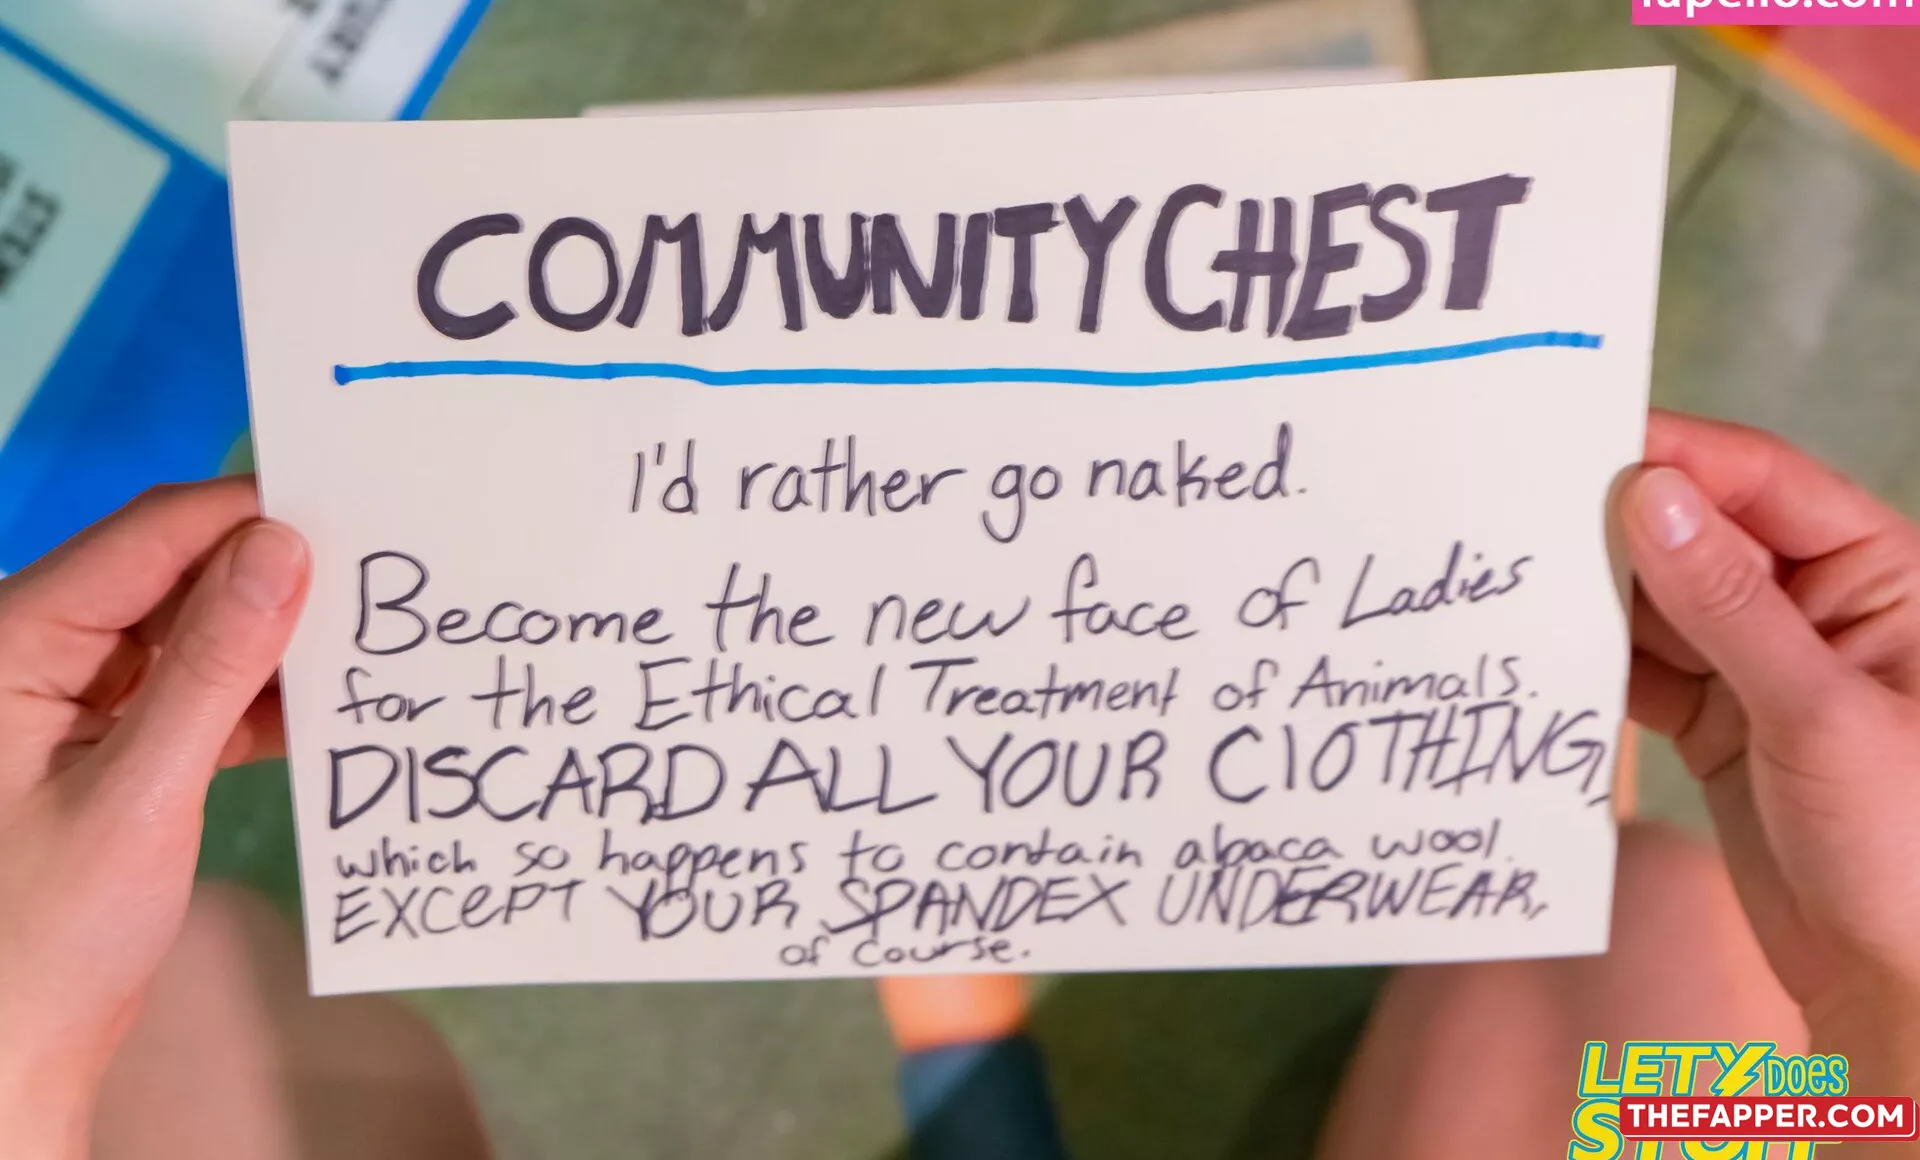 COMMUNITY CHEST
I'd rather go naked.
Become the new face of Ladies
for the Ethical Treatment of Animals.
DISCARD ALL YOUR ClOTHING,
which so happens to contain alpaca wool.
EXCePT YOUR SPANDEX UNDERWEAR,
of course.
LETY DOES
THEFAPPER.COM